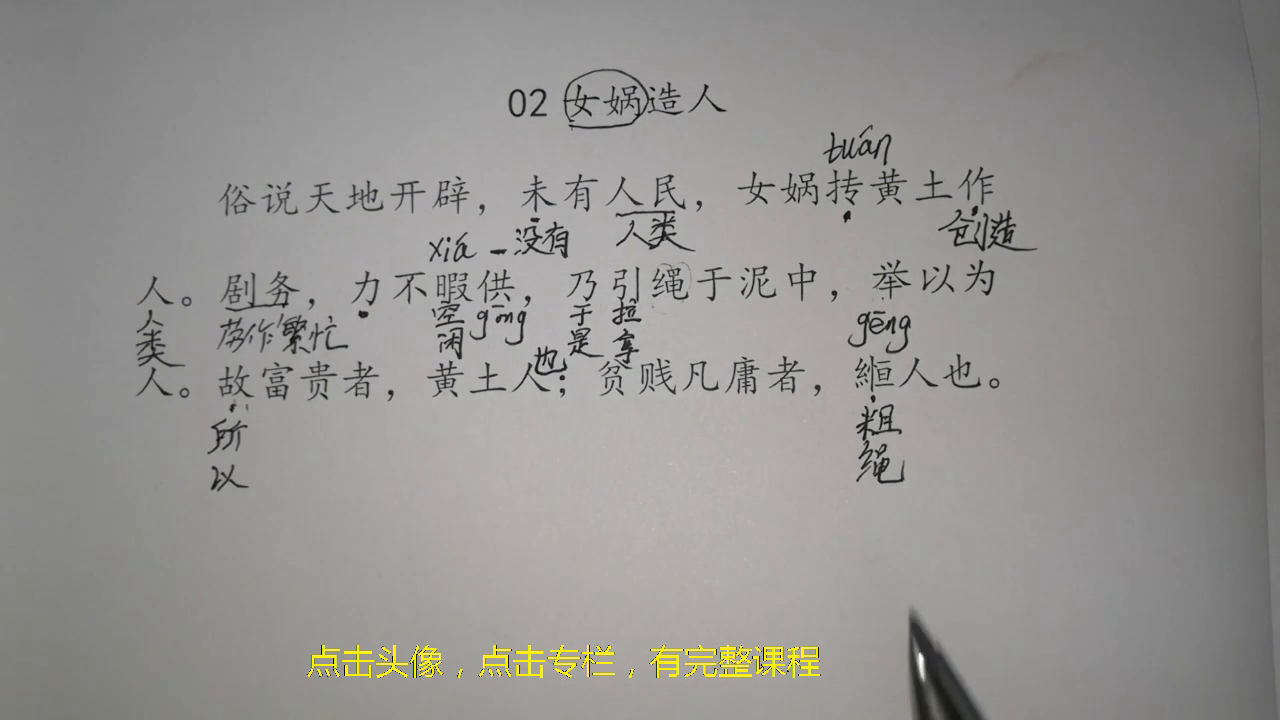 02 女娲造人
tuán
俗说天地开辟，未有人民，女娲抟黄土作
xiá 没有 人类 创造
人。剧务，力不暇供，乃引绳于泥中，举以为
人类 劳作繁忙 空闲 gōng 于是 拉拿 gēng
也
人。故富贵者，黄土人；贫贱凡庸者，縆人也。
所以 粗绳
点击头像，点击专栏，有完整课程